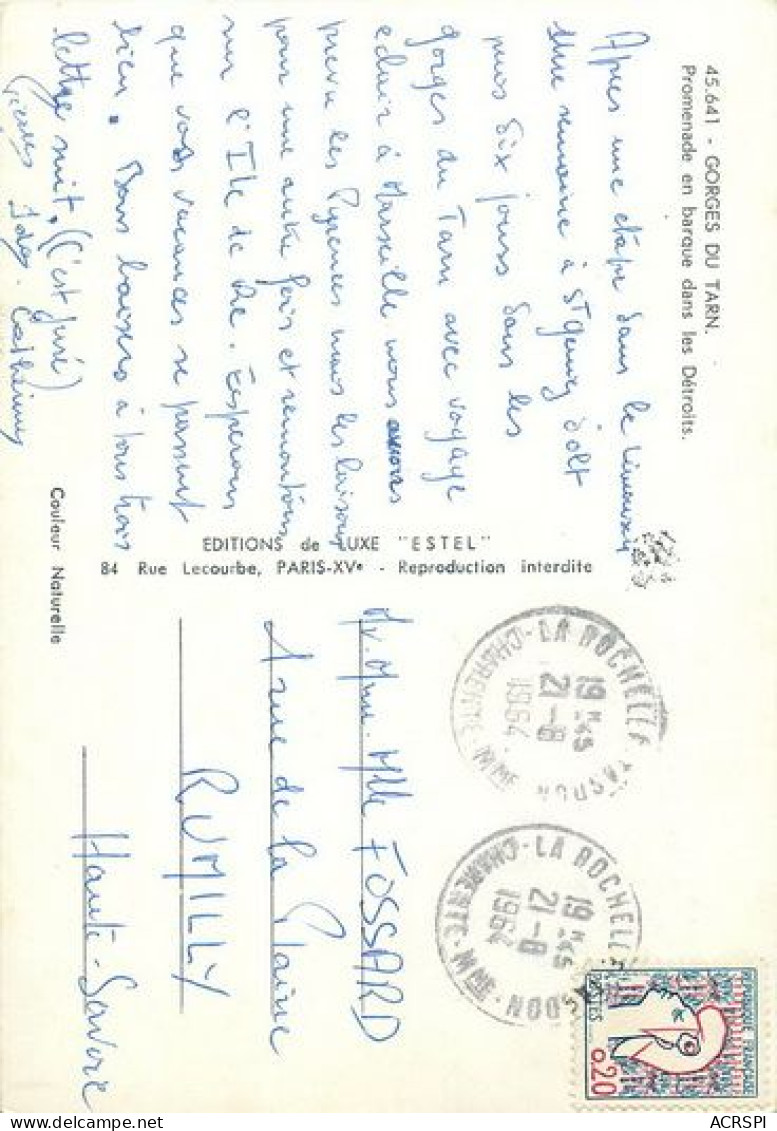 45.641 - GORGES DU TARN.
Promenade en barque dans les Détroits.
Après une étape dans le Limousin
une semaine à St Geniez d'olt
puis dix jours dans les
gorges du Tarn avec voyage
eclair à Marseille nous avions
prevu les Pyrenées mais les laissons
pour une autre fois et remontons
sur l'Ile de Ré. Esperons
que vos vacances se passent
bien. Bons baisers à tous trois
lettre suit. (C'est juré)
Catherine
Couleur Naturelle
EDITIONS de LUXE "ESTEL"
84 Rue Lecourbe, PARIS-XVe - Reproduction interdite
LA ROCHELLE
19 H 45
21-8
1964
CHARENTE-MME
LA ROCHELLE
19 H 45
21-8
1964
CHARENTE-MME
REPUBLIQUE FRANÇAISE
POSTES
0,20
Mr. Mme. Mlle FOSSARD
1 rue de la Plaine
RUMILLY
Haute-Savoie
ACRSPI